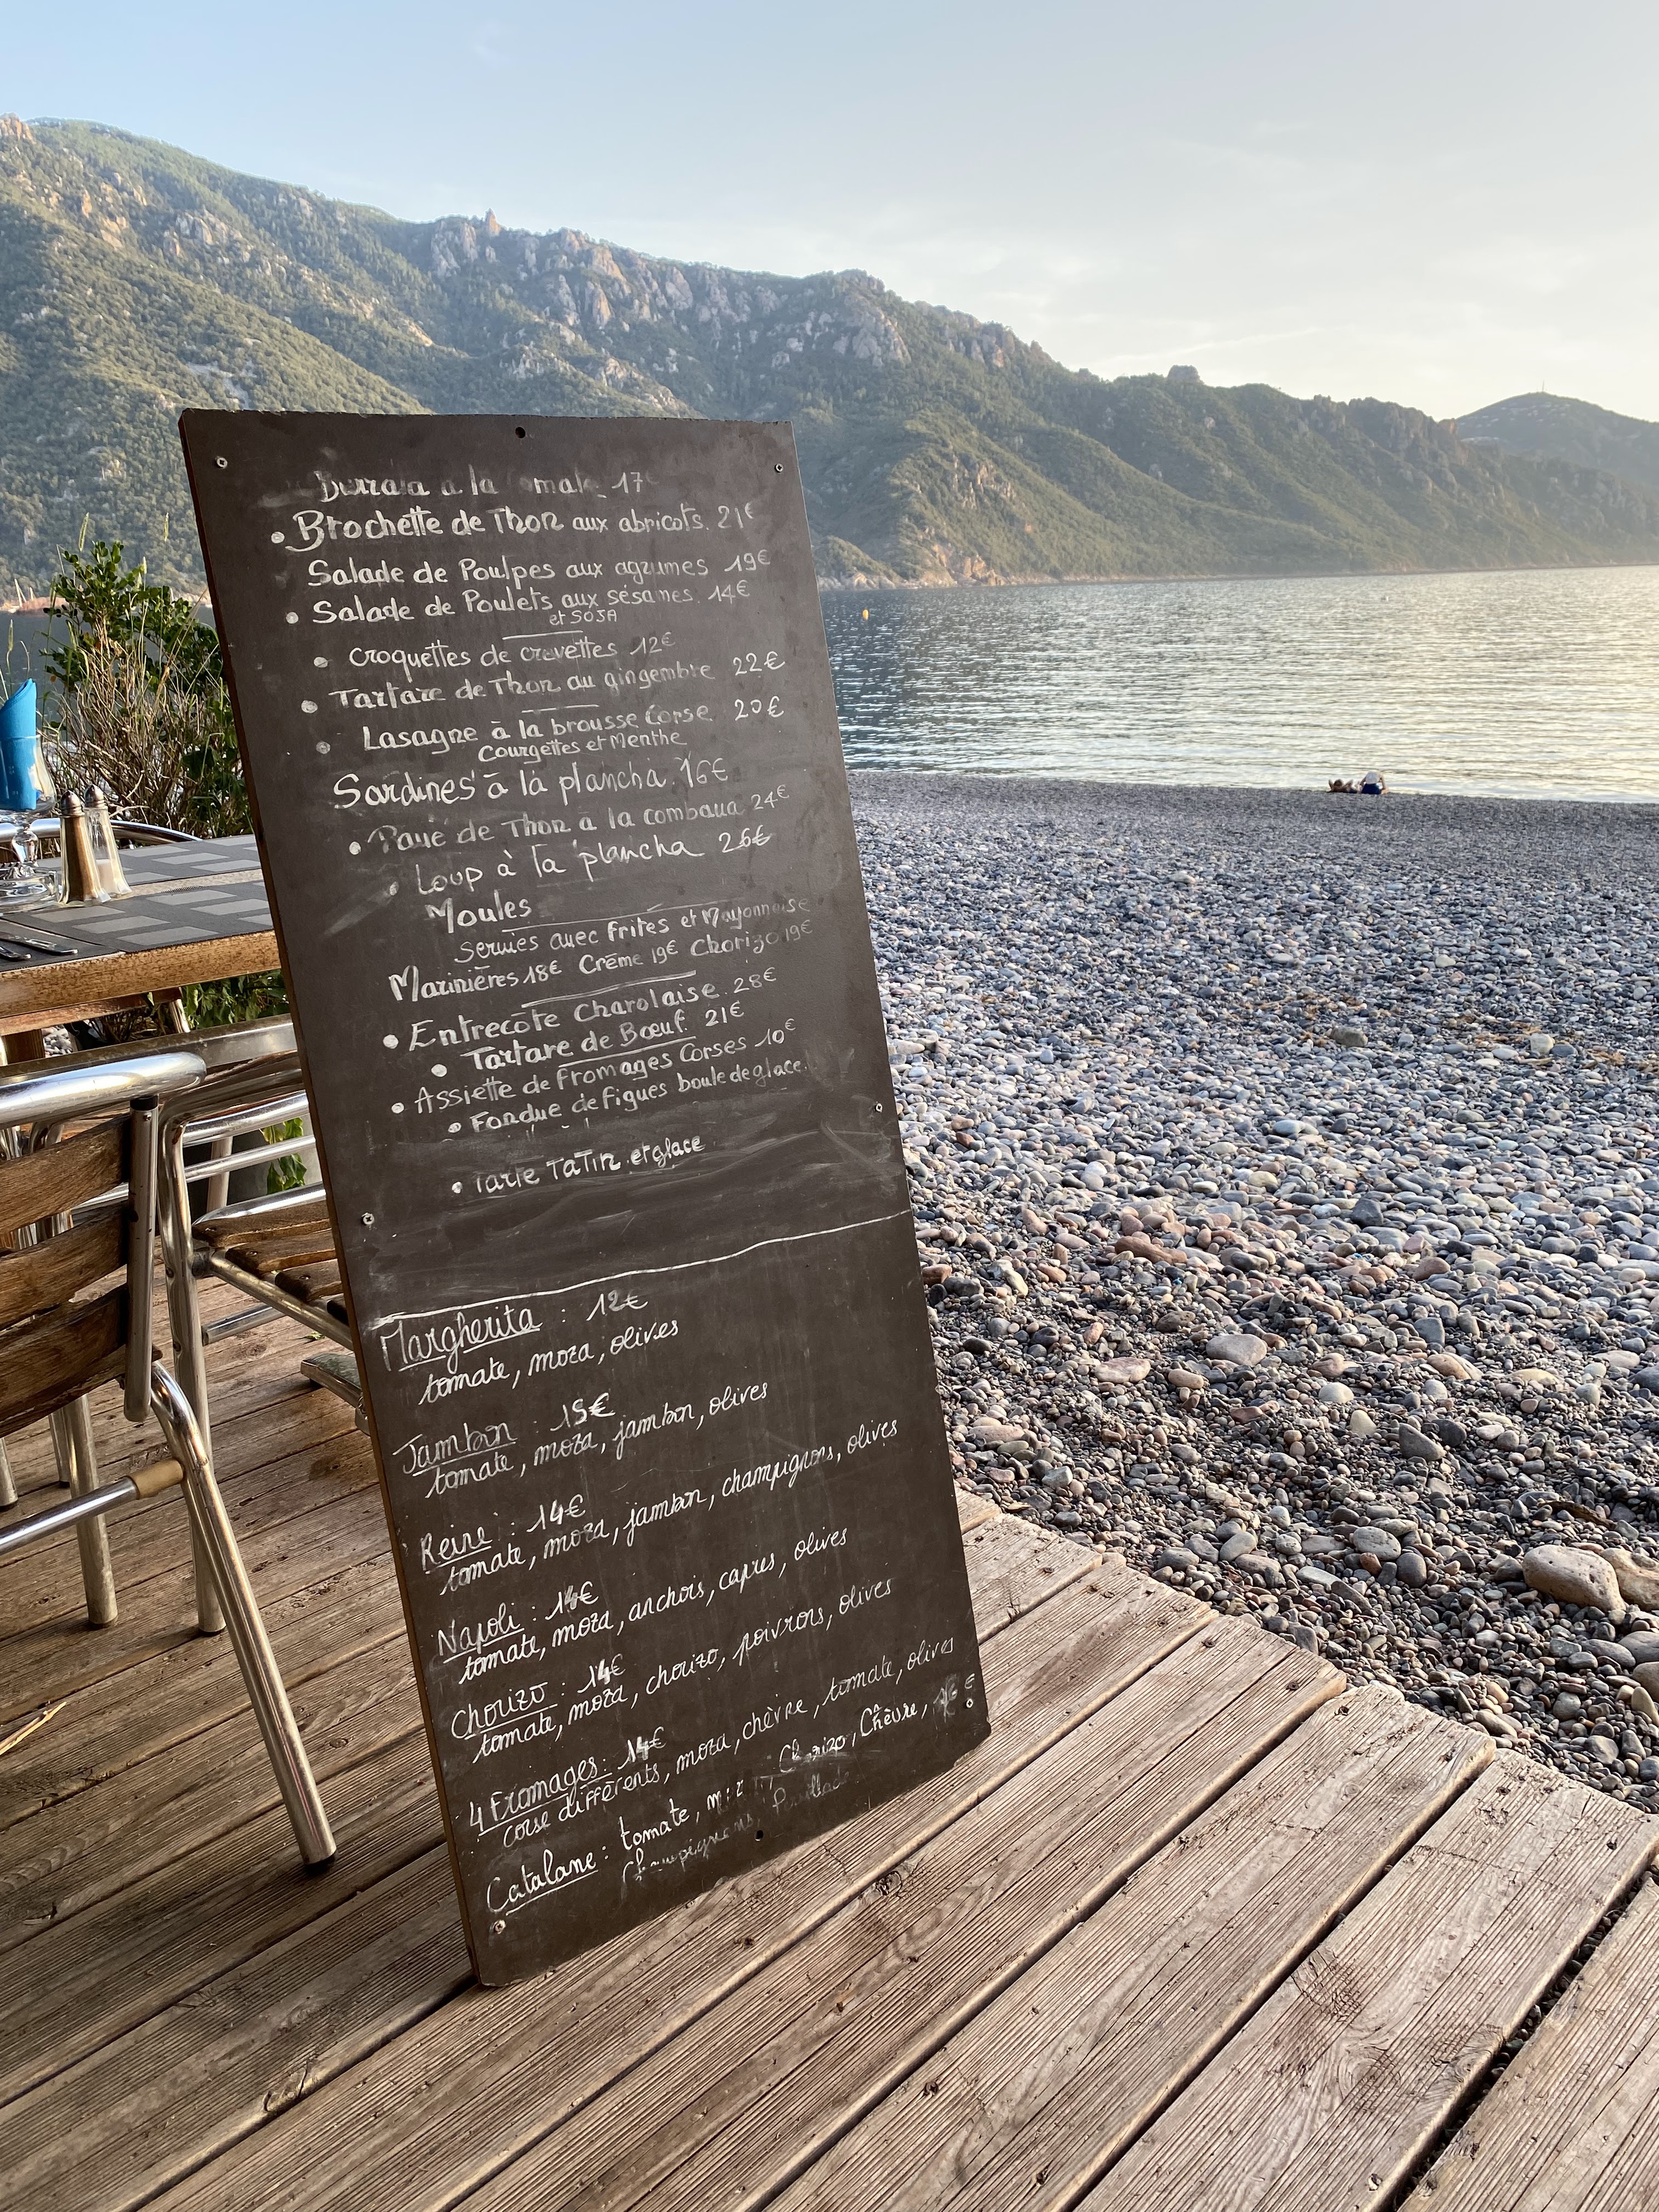 Burrata a la 17€
• Brochette de Thon aux abricots. 21€
Salade de Poulpes aux agrumes 19€
• Salade de Poulets aux sésames. 14€
et SOJA
• Croquettes de crevettes 12€
• Tartare de Thon au gingembre 22€
• Lasagne à la brousse Corse 20€
Courgettes et Menthe
Sardines à la plancha. 16€
• Pavé de Thon a la combava 24€
• Loup à la plancha 26€
Moules
Servies avec frites et Mayonnaise
Marinières 18€ Crème 19€ Chorizo 19€
• Entrecôte Charolaise. 28€
• Tartare de Bœuf. 21€
• Assiette de fromages Corses 10€
• Fondue de figues boule de glace.
• Tarte TaTin et glace
Margherita : 12€
tomate, moza, olives
Jambon : 15€
tomate, moza, jambon, olives
Reine : 14€
tomate, moza, jambon, champignons, olives
Napoli : 14€
tomate, moza, anchois, capres, olives
Chorizo : 14€
tomate, moza, chorizo, poivrons, olives
4 Fromages : 14€
corse différents, moza, chèvre, tomate, olives
Catalane : tomate, Chorizo, Chèvre, €
Champignons,